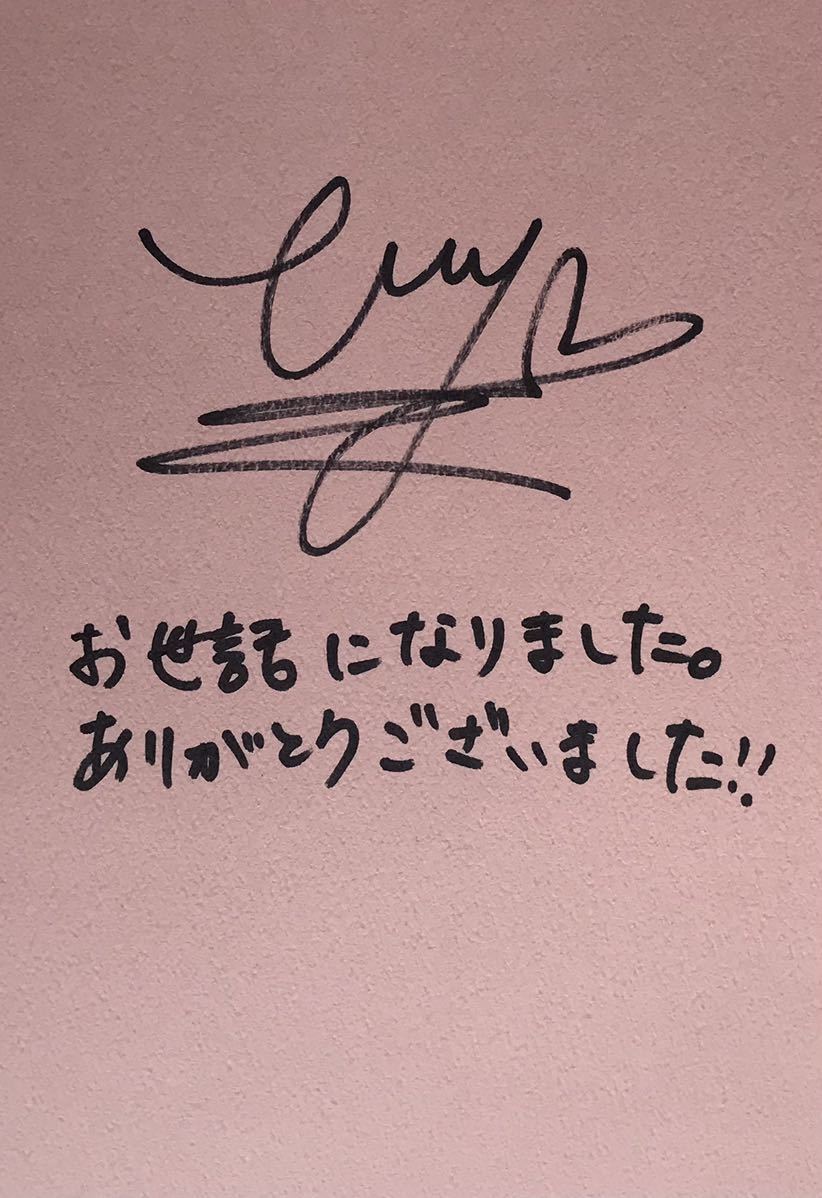 お世話になりました。
ありがとうございました!!